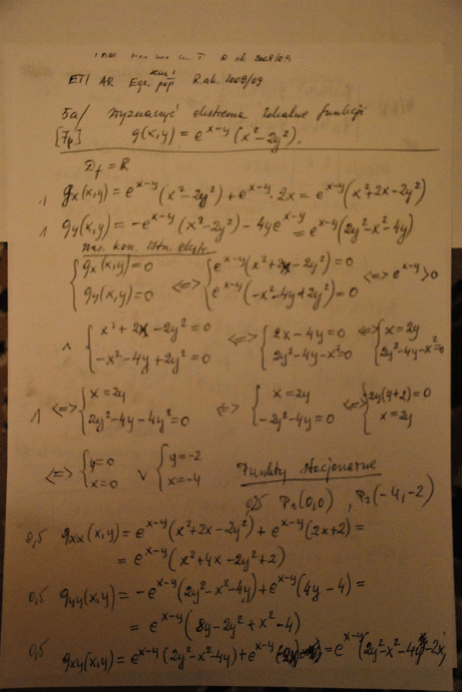 ETI AR Egz. pop sem I R. ak. 2008/09
5a/ Wyznaczyć ekstrema lokalne funkcji
[7p] g(x,y) = e^{x-y}(x²-2y²).
D_f = R
1 g_x(x,y) = e^{x-y}(x²-2y²) + e^{x-y}·2x = e^{x-y}(x²+2x-2y²)
1 g_y(x,y) = -e^{x-y}(x²-2y²) - 4ye^{x-y} = e^{x-y}(2y²-x²-4y)
war. kon. istn. ekstr.
{ g_x(x,y)=0 <=> { e^{x-y}(x²+2x-2y²)=0 <=> e^{x-y}>0
{ g_y(x,y)=0 { e^{x-y}(-x²-4y+2y²)=0
1 { x²+2x-2y²=0 <=> { 2x-4y=0 <=> { x=2y
{ -x²-4y+2y²=0 { 2y²-4y-x²=0 { 2y²-4y-x²=0
1 <=> { x=2y <=> { x=2y <=> { 2y(y+2)=0
{ 2y²-4y-4y²=0 { -2y²-4y=0 { x=2y
<=> { y=0 v { y=-2 Punkty stacjonarne
{ x=0 { x=-4
0,5 P₁(0,0), P₂(-4,-2)
0,5 g_xx(x,y) = e^{x-y}(x²+2x-2y²) + e^{x-y}(2x+2) =
= e^{x-y}(x²+4x-2y²+2)
0,5 g_yy(x,y) = -e^{x-y}(2y²-x²-4y) + e^{x-y}(4y-4) =
= e^{x-y}(8y-2y²+x²-4)
0,5 g_xy(x,y) = e^{x-y}(2y²-x²-4y) + e^{x-y} = e^{x-y}(2y²-x²-4y-2x)